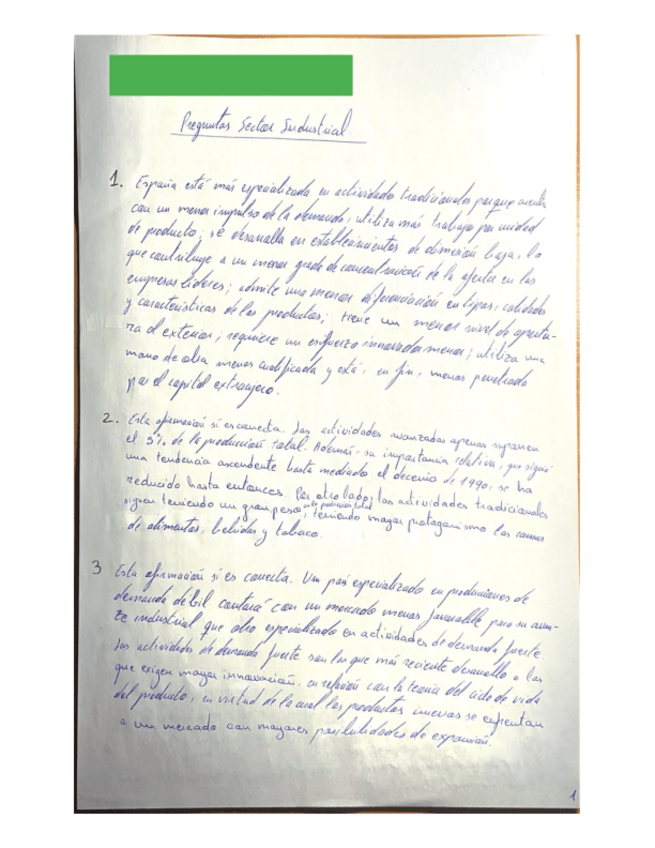 Preguntas Sector Industrial
1. España está más especializada en actividades tradicionales porque cuenta
con un menor impulso de la demanda; utiliza más trabajo por unidad
de producto; se desarrolla en establecimientos de dimensión baja, lo
que contribuye a un menor grado de concentración de la oferta en las
empresas líderes; admite una menor diferenciación en tipos, calidades
y características de los productos; tiene un menor nivel de apertu-
ra al exterior; requiere un esfuerzo innovador menor; utiliza una
mano de obra menos cualificada y está, en fin, menos penetrada
por el capital extranjero.
2. Esta afirmación sí es correcta. Las actividades avanzadas apenas suponen
el 5% de la producción total. Además, su importancia relativa, que siguió
una tendencia ascendente hasta mediado el decenio de 1990, se ha
reducido hasta entonces. Por otro lado, las actividades tradicionales
siguen teniendo un gran peso en la producción total, teniendo mayor protagonismo las
de alimentos, bebidas y tabaco.
3 Esta afirmación sí es correcta. Un país especializado en producciones de
demanda débil contará con un mercado menos favorable para su avan-
ce industrial que otro especializado en actividades de demanda fuerte.
Las actividades de demanda fuerte son las que más reciente desarrollo o las
que exigen mayor innovación, en relación con la teoría del ciclo de vida
del producto, en virtud de la cual los productos nuevos se enfrentan
a un mercado con mayores posibilidades de expansión.
1